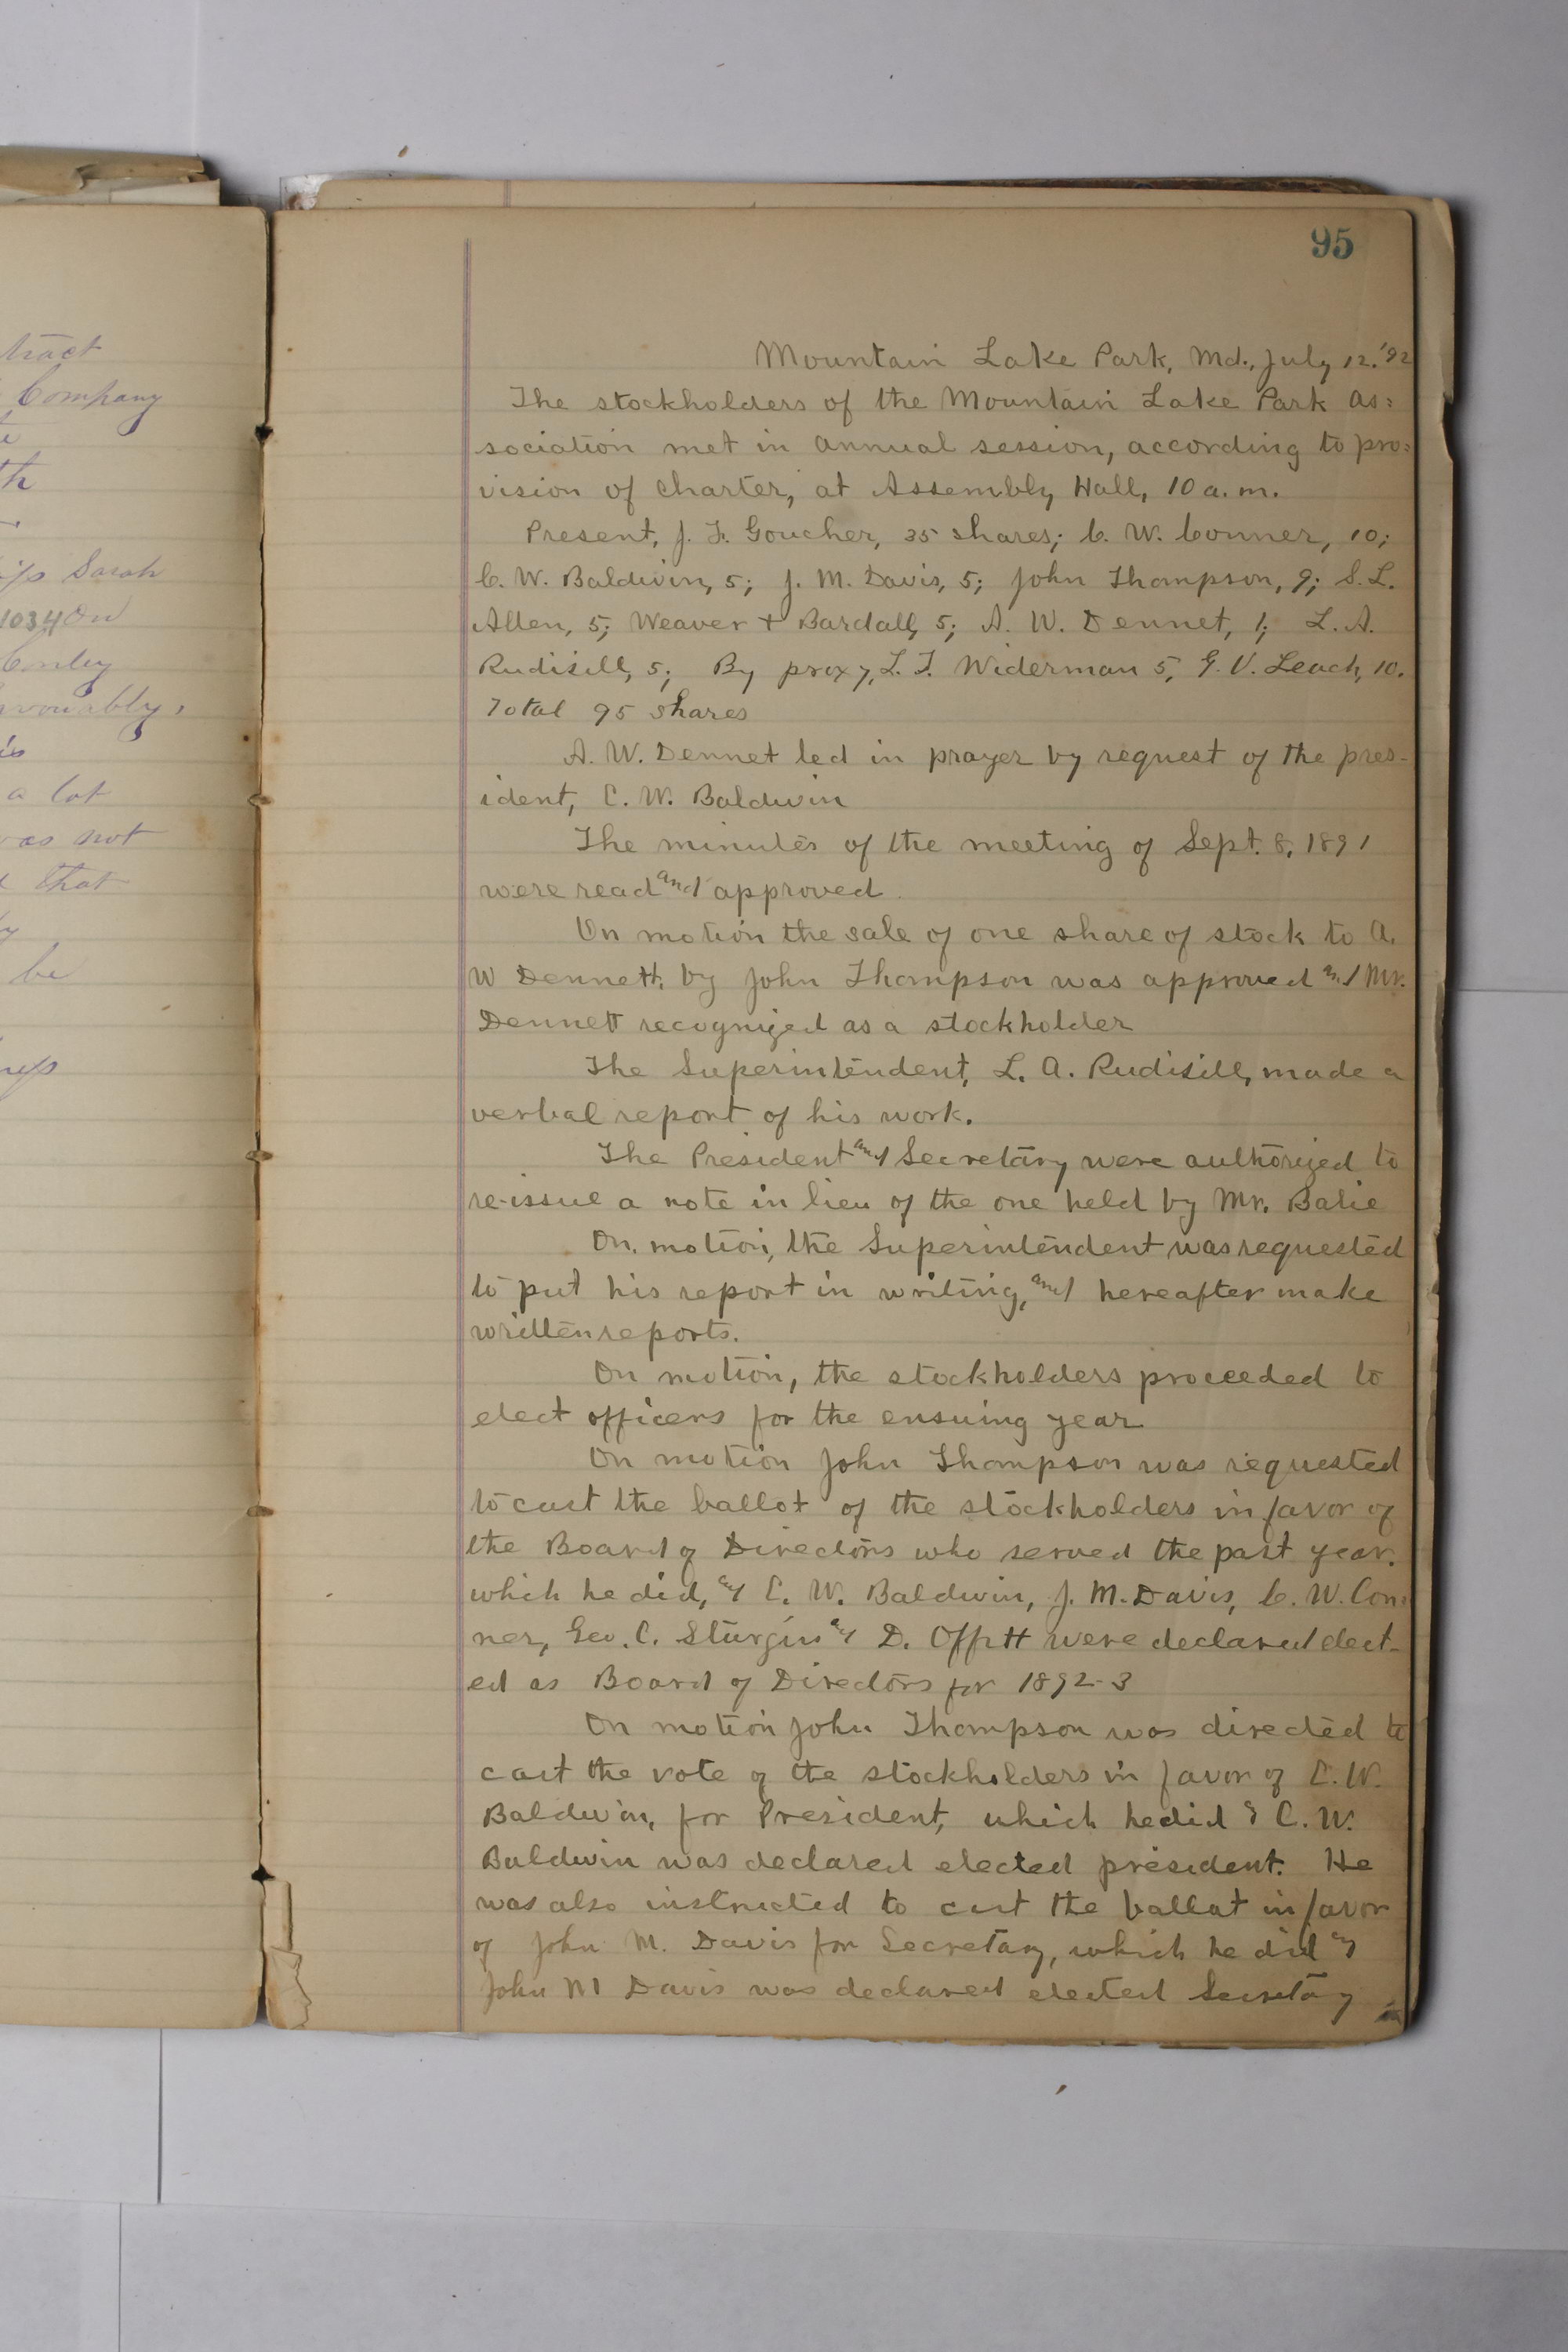 tract
Company
th
Sarah
1034 On
Conley
avourably,
is
a lot
was not
that
be
95
Mountain Lake Park, Md., July 12, '92
The stockholders of the Mountain Lake Park As=
sociation met in annual session, according to pro=
vision of charter, at Assembly Hall, 10 a.m.
Present, J. F. Goucher, 35 shares; C. W. Conner, 10;
C. W. Baldwin, 5; J. M. Davis, 5; John Thompson, 9; S. L.
Allen, 5; Weaver + Bardall, 5; A. W. Dennet, 1; L. A.
Rudisill, 5; By proxy, L. F. Widerman 5, G. V. Leach, 10.
Total 95 shares
A. W. Dennet led in prayer by request of the pres-
ident, C. W. Baldwin
The minutes of the meeting of Sept. 8, 1891
were read and approved.
On motion the sale of one share of stock to A.
W Dennett by John Thompson was approved and Mr.
Dennett recognized as a stockholder
The Superintendent, L. A. Rudisill, made a
verbal report of his work.
The President and Secretary were authorized to
re-issue a note in lieu of the one held by Mr. Balie
On motion, the Superintendent was requested
to put his report in writing, and hereafter make
written reports.
On motion, the stockholders proceeded to
elect officers for the ensuing year
On motion John Thompson was requested
to cast the ballot of the stockholders in favor of
the Board of Directors who served the past year.
which he did, and C. W. Baldwin, J. M. Davis, C. W. Con=
ner, Geo. C. Sturgiss and D. Offutt were declared elect-
ed as Board of Directors for 1892-3
On motion John Thompson was directed to
cast the vote of the stockholders in favor of C. W.
Baldwin, for President, which he did & C. W.
Baldwin was declared elected president. He
was also instructed to cast the ballot in favor
of John M. Davis for Secretary, which he did and
John M Davis was declared elected Secretary